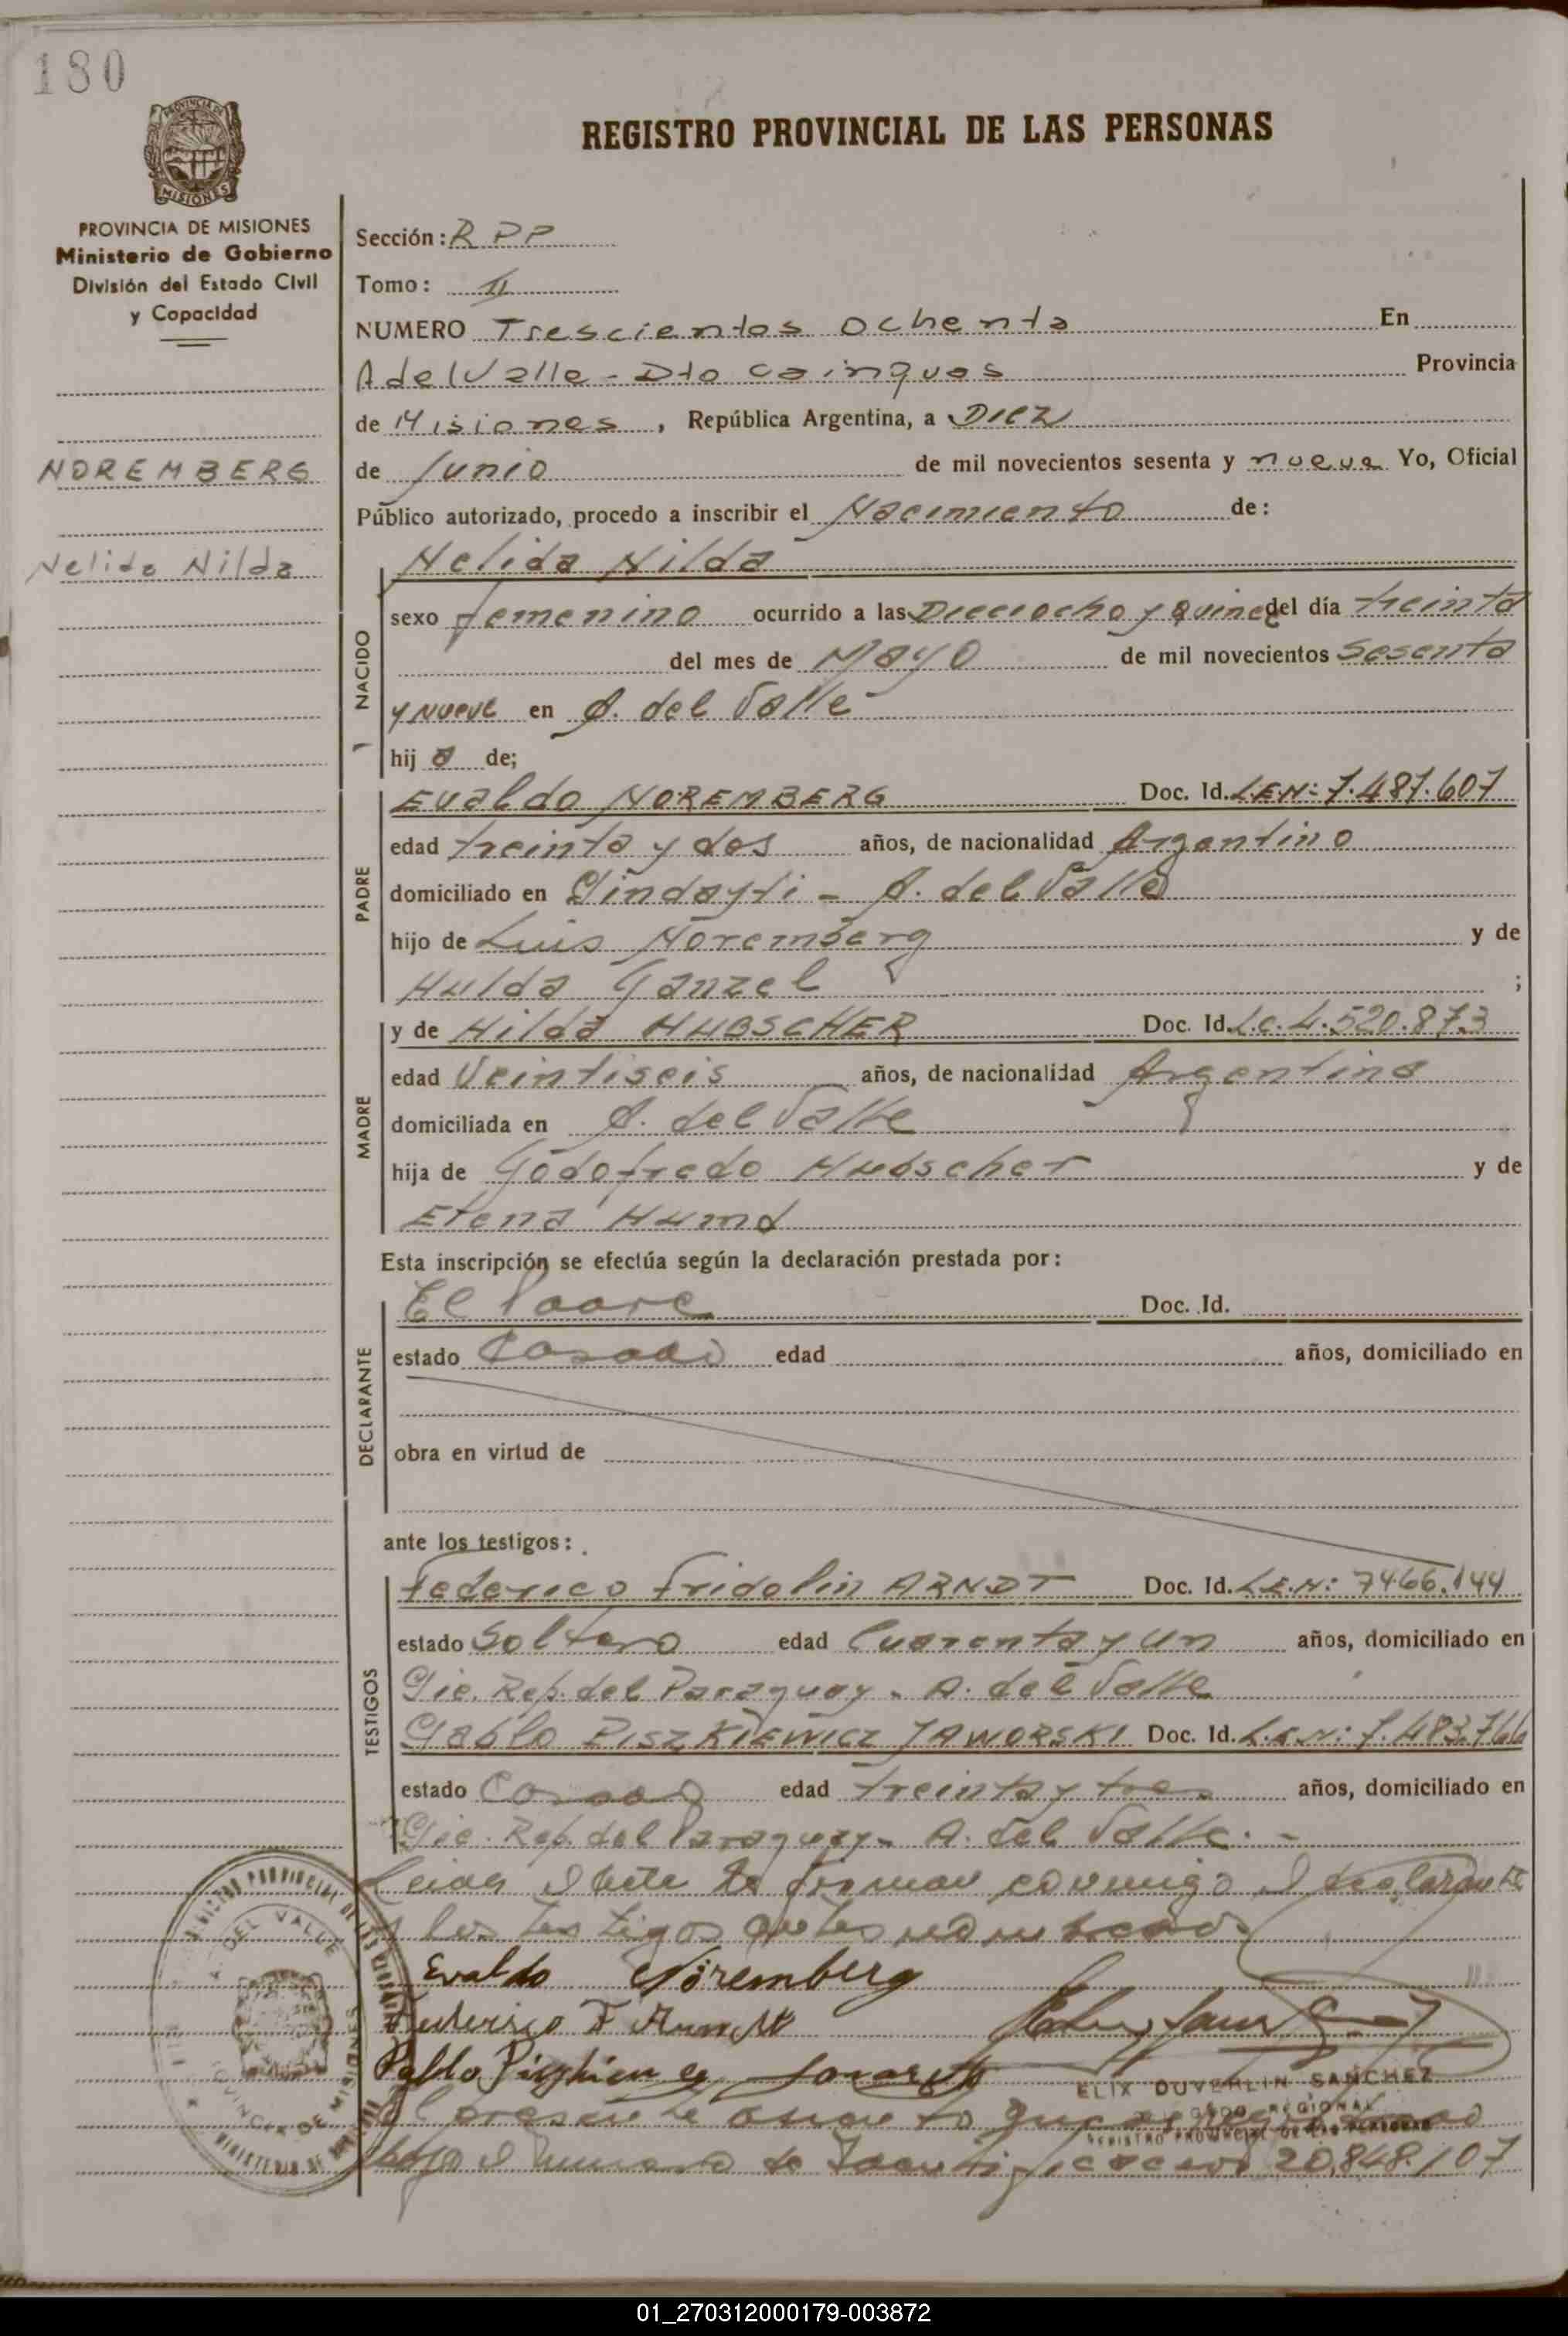 180
REGISTRO PROVINCIAL DE LAS PERSONAS
PROVINCIA DE
MISIONES
PROVINCIA DE MISIONES
Ministerio de Gobierno
División del Estado Civil
y Capacidad
NOREMBERG
Nelida Nilda
Sección: RPP
Tomo: II
NUMERO Trescientos ochenta En
A del Valle - Dto cainguas Provincia
de Misiones, República Argentina, a Diez
de Junio de mil novecientos sesenta y nueve Yo, Oficial
Público autorizado, procedo a inscribir el Nacimiento de:
NACIDO
Nelida Nilda
sexo femenino ocurrido a las Dieciocho y Quince del día treinta
del mes de Mayo de mil novecientos Sesenta
y nueve en A. del Valle
hij a de;
PADRE
Evaldo NOREMBERG Doc. Id. L.E.N: 7.487.607
edad treinta y dos años, de nacionalidad Argentino
domiciliado en Pindayti - A. del Valle
hijo de Luis Noremberg y de
Hulda Ganzel ;
MADRE
y de Hilda HUBSCHER Doc. Id. L.C. 4.520.873
edad Veintiseis años, de nacionalidad Argentina
domiciliada en A. del Valle
hija de Godofredo Hubscher y de
Elena Humd
Esta inscripción se efectúa según la declaración prestada por:
DECLARANTE
El Padre Doc. Id.
estado Casado edad años, domiciliado en
obra en virtud de
ante los testigos:
TESTIGOS
Federico Fridolin ARNDT Doc. Id. L.E.N: 7466.144
estado Soltero edad Cuarenta y un años, domiciliado en
Pic. Rep. del Paraguay - A. del Valle
Pablo PISZKIEWICZ JAWORSKI Doc. Id. L.E.N: 7.483.766
estado Casado edad treinta y tres años, domiciliado en
Pic. Rep. del Paraguay - A. del Valle. -
Leida el acta la firman conmigo el declarante
y los testigos antes nombrados
Evaldo Noremberg
Federico F Arndt
Pablo
ELIX DUVERLIN SANCHEZ
REGIONAL
REGISTRO PROVINCIAL DE LAS PERSONAS
El presente asiento queda registrado
bajo el Numero de Identificacion 20,848.107
A. DEL VALLE
PROVINCIA DE MISIONES
01_270312000179-003872